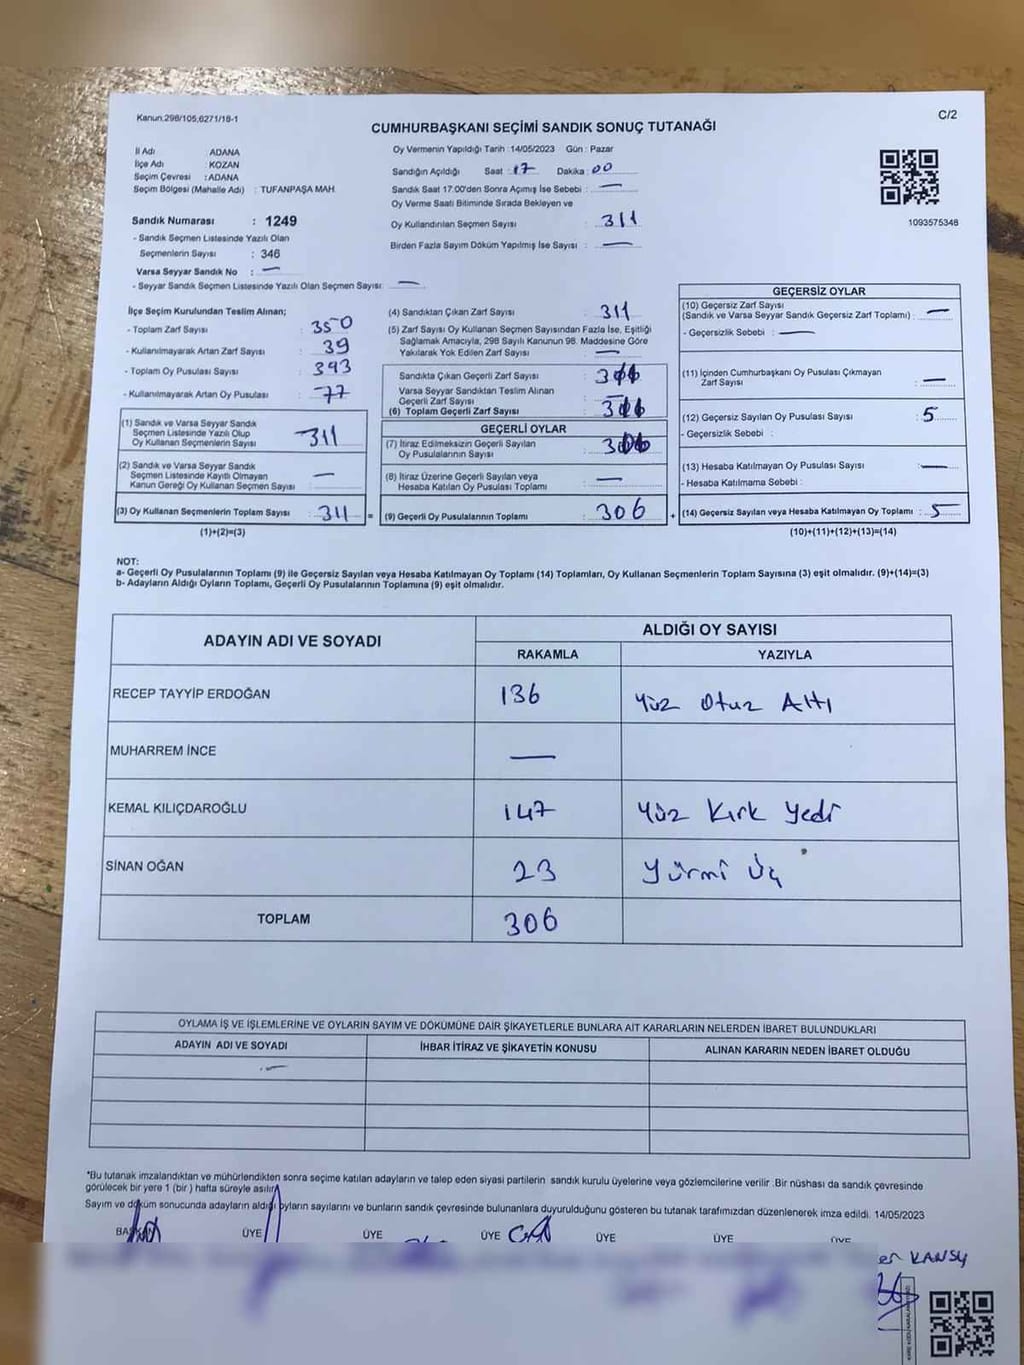 Kanun.298/105,6271/18-1
C/2
CUMHURBAŞKANI SEÇİMİ SANDIK SONUÇ TUTANAĞI
İl Adı : ADANA
İlçe Adı : KOZAN
Seçim Çevresi : ADANA
Seçim Bölgesi (Mahalle Adı) : TUFANPAŞA MAH.
Sandık Numarası : 1249
- Sandık Seçmen Listesinde Yazılı Olan
Seçmenlerin Sayısı : 346
Varsa Seyyar Sandık No : —
- Seyyar Sandık Seçmen Listesinde Yazılı Olan Seçmen Sayısı : —
Oy Vermenin Yapıldığı Tarih :14/05/2023 Gün : Pazar
Sandığın Açıldığı Saat : 17 Dakika : 00
Sandık Saat 17.00'den Sonra Açımış İse Sebebi : —
Oy Verme Saati Bitiminde Sırada Bekleyen ve
Oy Kullandırılan Seçmen Sayısı : 311
Birden Fazla Sayım Döküm Yapılmış İse Sayısı : —
1093575348
İlçe Seçim Kurulundan Teslim Alınan;
- Toplam Zarf Sayısı : 350
- Kullanılmayarak Artan Zarf Sayısı : 39
- Toplam Oy Pusulası Sayısı : 393
- Kullanılmayarak Artan Oy Pusulası : 77
(1) Sandık ve Varsa Seyyar Sandık
Seçmen Listesinde Yazılı Olup
Oy Kullanan Seçmenlerin Sayısı : 311
(2) Sandık ve Varsa Seyyar Sandık
Seçmen Listesinde Kayıtlı Olmayan
Kanun Gereği Oy Kullanan Seçmen Sayısı : —
(3) Oy Kullanan Seçmenlerin Toplam Sayısı : 311 =
(1)+(2)=(3)
(4) Sandıktan Çıkan Zarf Sayısı : 311
(5) Zarf Sayısı Oy Kullanan Seçmen Sayısından Fazla İse, Eşitliği
Sağlamak Amacıyla, 298 Sayılı Kanunun 98. Maddesine Göre
Yakılarak Yok Edilen Zarf Sayısı : —
Sandıkta Çıkan Geçerli Zarf Sayısı : 306
Varsa Seyyar Sandıktan Teslim Alınan
Geçerli Zarf Sayısı : —
(6) Toplam Geçerli Zarf Sayısı : 306
GEÇERLİ OYLAR
(7) İtiraz Edilmeksizin Geçerli Sayılan
Oy Pusulalarının Sayısı : 306
(8) İtiraz Üzerine Geçerli Sayılan veya
Hesaba Katılan Oy Pusulası Toplamı : —
(9) Geçerli Oy Pusulalarının Toplamı : 306 +
GEÇERSİZ OYLAR
(10) Geçersiz Zarf Sayısı
(Sandık ve Varsa Seyyar Sandık Geçersiz Zarf Toplamı) : —
- Geçersizlik Sebebi : —
(11) İçinden Cumhurbaşkanı Oy Pusulası Çıkmayan
Zarf Sayısı : —
(12) Geçersiz Sayılan Oy Pusulası Sayısı : 5
- Geçersizlik Sebebi :
(13) Hesaba Katılmayan Oy Pusulası Sayısı : —
- Hesaba Katılmama Sebebi :
(14) Geçersiz Sayılan veya Hesaba Katılmayan Oy Toplamı : 5
(10)+(11)+(12)+(13)=(14)
NOT:
a- Geçerli Oy Pusulalarının Toplamı (9) ile Geçersiz Sayılan veya Hesaba Katılmayan Oy Toplamı (14) Toplamları, Oy Kullanan Seçmenlerin Toplam Sayısına (3) eşit olmalıdır. (9)+(14)=(3)
b- Adayların Aldığı Oyların Toplamı, Geçerli Oy Pusulalarının Toplamına (9) eşit olmalıdır.
ADAYIN ADI VE SOYADI ALDIĞI OY SAYISI
RAKAMLA YAZIYLA
RECEP TAYYİP ERDOĞAN 136 Yüz Otuz Altı
MUHARREM İNCE —
KEMAL KILIÇDAROĞLU 147 Yüz Kırk Yedi
SİNAN OĞAN 23 Yirmi Üç
TOPLAM 306
OYLAMA İŞ VE İŞLEMLERİNE VE OYLARIN SAYIM VE DÖKÜMÜNE DAİR ŞİKAYETLERLE BUNLARA AİT KARARLARIN NELERDEN İBARET BULUNDUKLARI
ADAYIN ADI VE SOYADI İHBAR İTİRAZ VE ŞİKAYETİN KONUSU ALINAN KARARIN NEDEN İBARET OLDUĞU
—
*Bu tutanak imzalandıktan ve mühürlendikten sonra seçime katılan adayların ve talep eden siyasi partilerin sandık kurulu üyelerine veya gözlemcilerine verilir .Bir nüshası da sandık çevresinde
görülecek bir yere 1 (bir ) hafta süreyle asılır.
Sayım ve döküm sonucunda adayların aldığı oyların sayılarını ve bunların sandık çevresinde bulunanlara duyurulduğunu gösteren bu tutanak tarafımızdan düzenlenerek imza edildi. 14/05/2023
BAŞKAN ÜYE ÜYE ÜYE ÜYE ÜYE ÜYE
KANSU